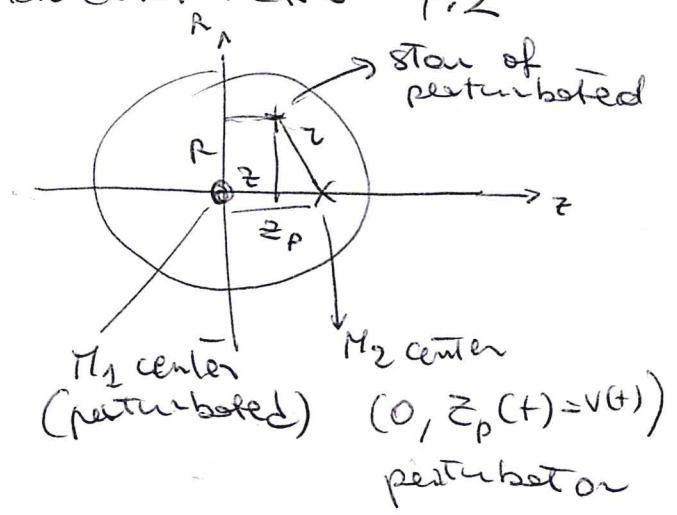 p.2
R
star of
perturbated
R
r
z
z
z_p
M_1 center
(perturbated)
M_2 center
(0, z_p(t)=v(t))
perturbator